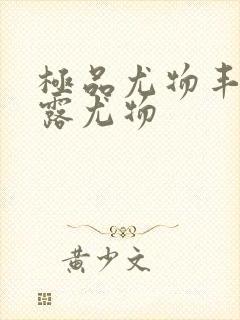 極品尤物丰
露尤物
黄少文